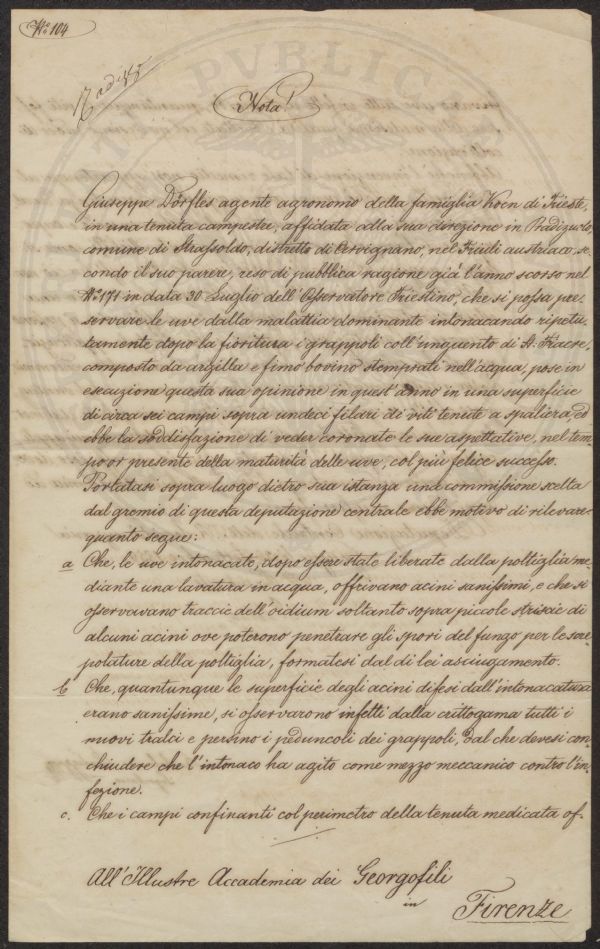 No. 104
Nota!
Giuseppe Dörfles agente agronomo della famiglia Koen di Trieste,
in una tenuta campestre, affidata alla sua direzione in Radigusto,
comune di Strassoldo, distretto di Cervignano, nel Friuli austriaco, se,
condo il suo parere, reso di pubblica ragione già l'anno scorso nel
No. 171 in data 30 Luglio dell'Osservatore Triestino, che si possa pre,
servare le uve dalla malattia dominante intonacando ripetu,
tamente dopo la fioritura i grappoli coll'unguento di St. Fiacre,
composto da argilla e fimo bovino stemprati nell'acqua, pose in
esecuzione questa sua opinione in quest'anno in una superficie
di circa sei campi sopra undeci filari di viti tenute a spaliera, ed
ebbe la soddisfazione di veder coronate le sue aspettative, nel tem,
po or presente della maturità delle uve, col più felice successo.
Portatasi sopra luogo dietro sua istanza una commissione scelta
dal gremio di questa deputazione centrale ebbe motivo di rilevare
quanto segue:
a Che, le uve intonacate, dopo essere state liberate dalla poltiglia me,
diante una lavatura in acqua, offrivano acini sanissimi, e che si
osservavano traccie dell'oidium soltanto sopra piccole striscie di
alcuni acini ove poterono penetrare gli spori del fungo per le scre,
polature della poltiglia, formatesi dal di lei asciugamento.
b Che, quantunque le superficie degli acini difesi dall'intonacatura
erano sanissime, si osservarono infetti dalla crittogama tutti i
nuovi tralci e persino i peduncoli dei grappoli, dal che devesi con,
chiudere che l'intonaco ha agito come mezzo meccanico contro l'in,
fezione.
c. Che i campi confinanti col perimetro della tenuta medicata of-
All'Illustre Accademia dei Georgofili
in
Firenze